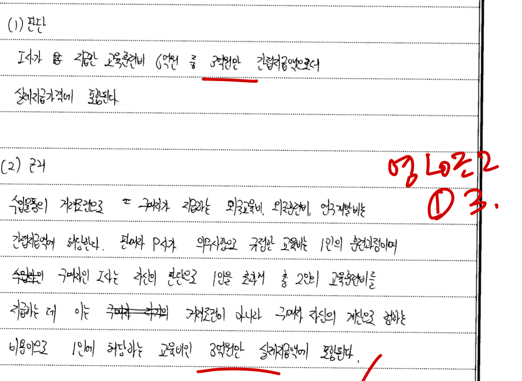 (1) 판단
I사가 지급한 교육훈련비 6억원 중 3억원만 간접지급액으로서
실제지급가격에 포함된다
(2) 근거
수입물품의 거래조건으로 구매자가 지급하는 외국교육비, 외국훈련비, 연구개발비는
간접지급액에 해당한다. 판매자 P사가 의무사항으로 규정한 교육비는 1인의 훈련과정이며
구매자인 I사는 자신의 판단으로 1인을 초과해 총 2인의 교육훈련비를
지급하는 데 이는 거래조건이 아니라 구매자 자신의 계산으로 행하는
비용이므로 1인에 해당하는 교육비인 3억원만 실제지급금액에 포함된다.
① 3.